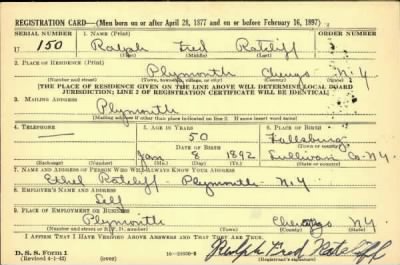 REGISTRATION CARD—(Men born on or after April 28, 1877 and on or before February 16, 1897)
SERIAL NUMBER 1. NAME (Print)
U 150 Ralph Fred Ratcliff
(First) (Middle) (Last)
2. PLACE OF RESIDENCE (Print)
Plymouth Chengo N-Y
(Number and street) (Town, township, village, or city) (County) (State)
[THE PLACE OF RESIDENCE GIVEN ON THE LINE ABOVE WILL DETERMINE LOCAL BOARD
JURISDICTION; LINE 2 OF REGISTRATION CERTIFICATE WILL BE IDENTICAL]
3. MAILING ADDRESS
Plymouth
[Mailing address if other than place indicated on line 2. If same insert word same]
4. TELEPHONE 5. AGE IN YEARS 6. PLACE OF BIRTH
50 Fallsburg
DATE OF BIRTH (Town or county)
Jan 8 1892 Sullivan Co-N-Y
(Exchange) (Number) (Mo.) (Day) (Yr.) (State or country)
7. NAME AND ADDRESS OF PERSON WHO WILL ALWAYS KNOW YOUR ADDRESS
Ethel Ratcliff - Plymouth - N-Y
8. EMPLOYER'S NAME AND ADDRESS
Self
9. PLACE OF EMPLOYMENT OR BUSINESS
Plymouth Chengo N-Y
(Number and street or R. F. D. number) (Town) (County) (State)
I AFFIRM THAT I HAVE VERIFIED ABOVE ANSWERS AND THAT THEY ARE TRUE.
D. S. S. Form 1
(Revised 4-1-42) (over) Ralph Fred Ratcliff
(Registrant's signature)